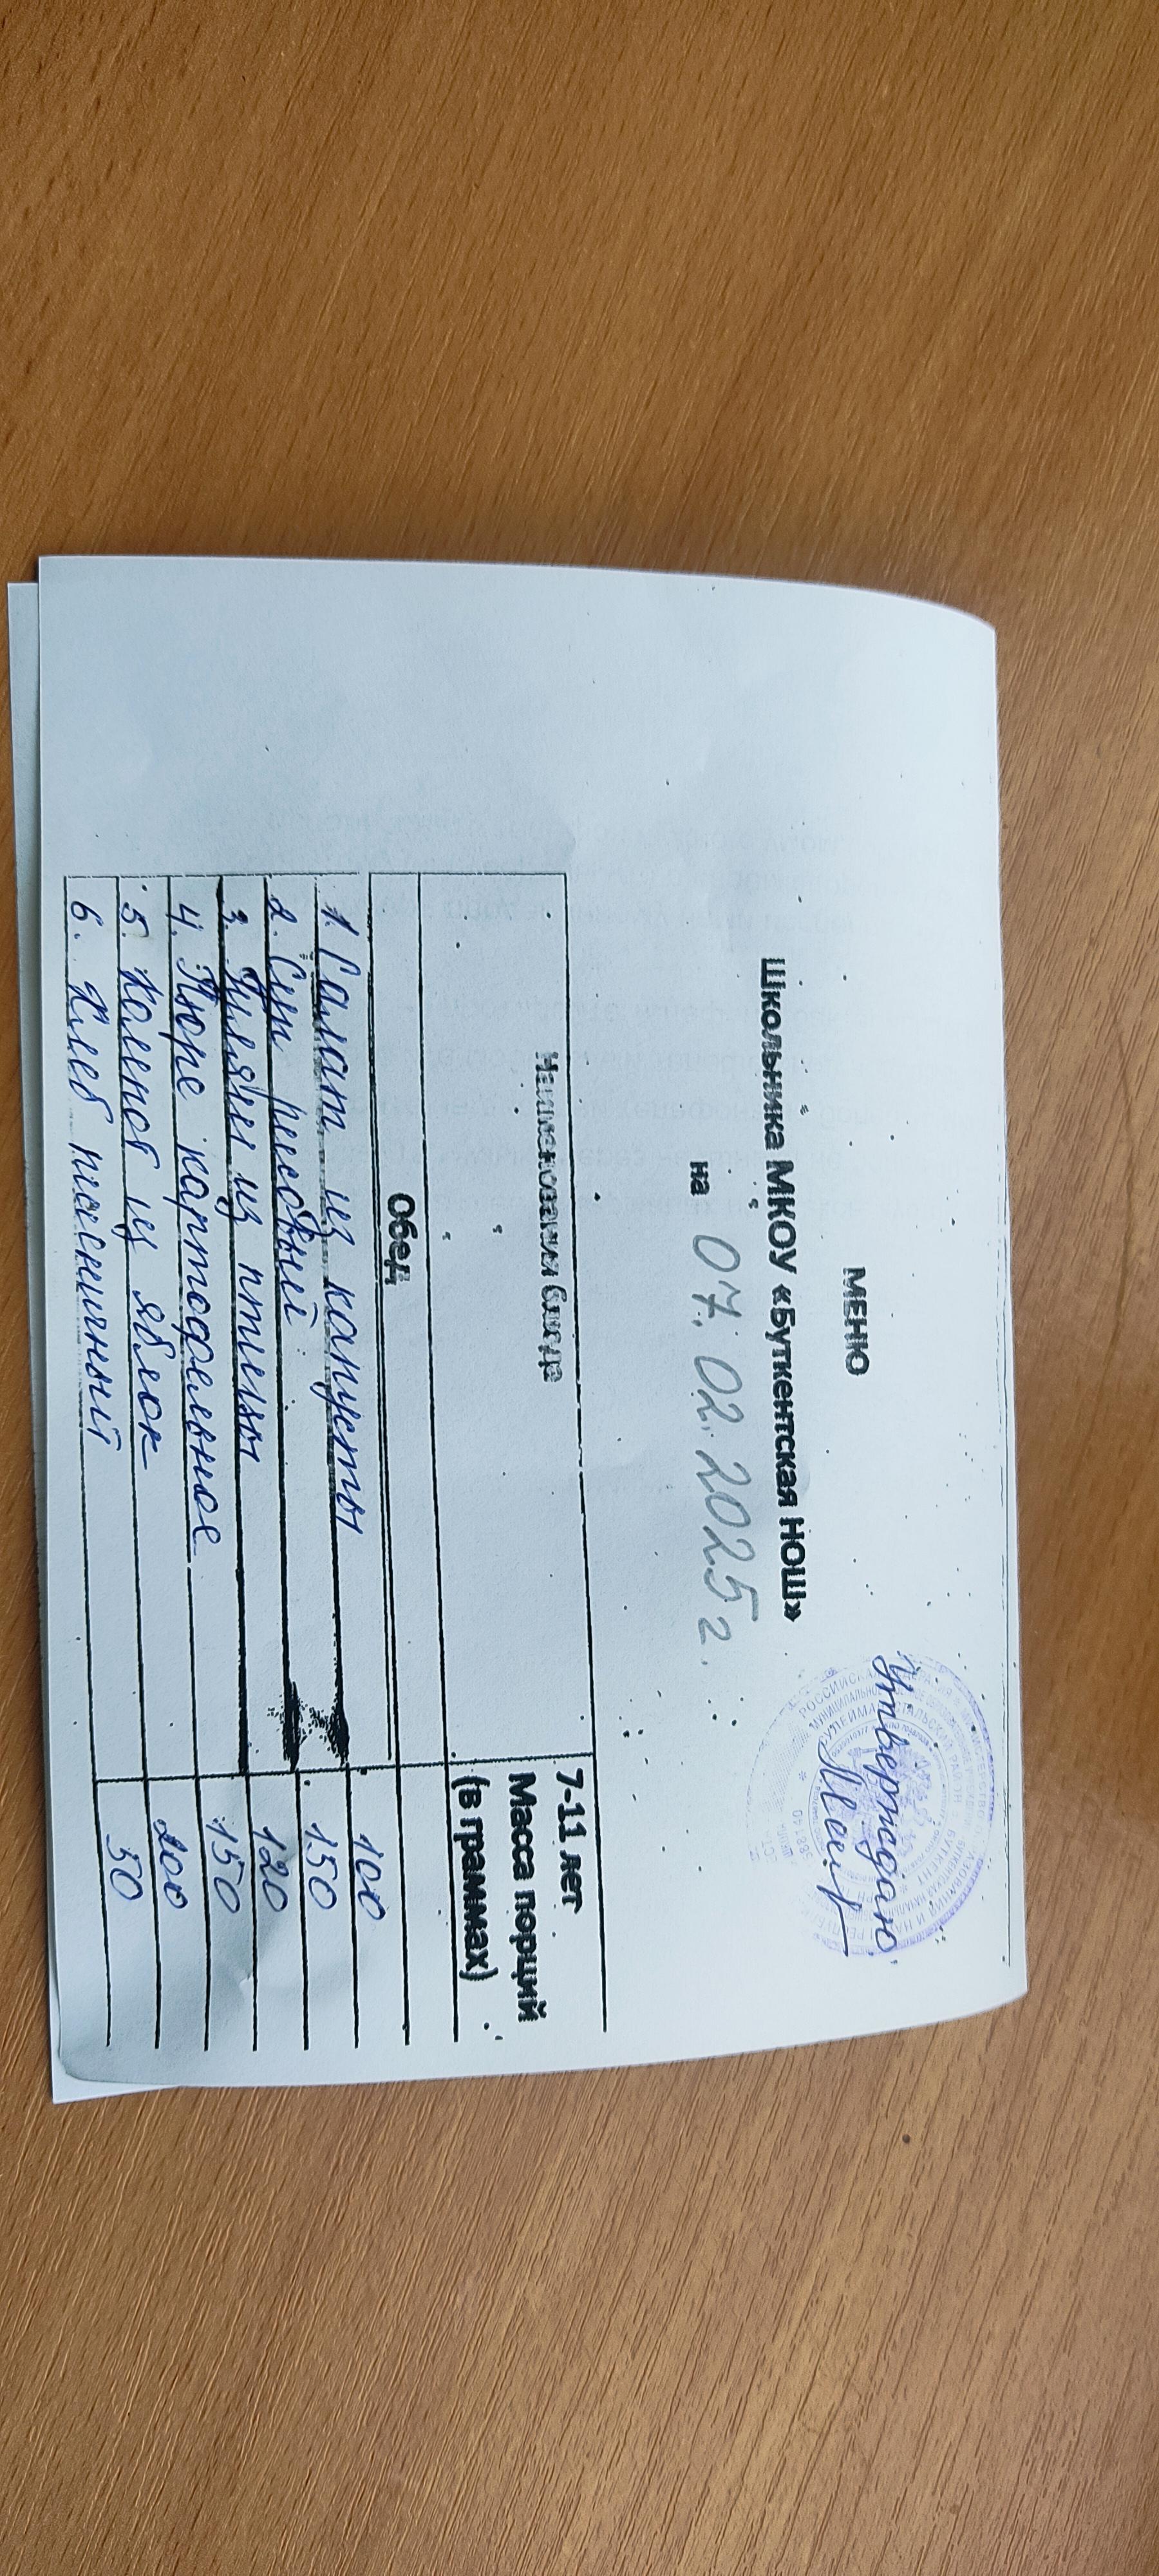 Утверждаю
МЕНЮ
Школьника МКОУ «Буткентская НОШ»
на 07.02.2025 г.
Наименования блюда 7-11 лет
Масса порций
(в граммах)
Обед
1. Салат из капусты 100
2. Суп рисовый 150
3. из птицы 120
4. Пюре картофельное 150
5. Компот из яблок 200
6. Хлеб пшеничный 50